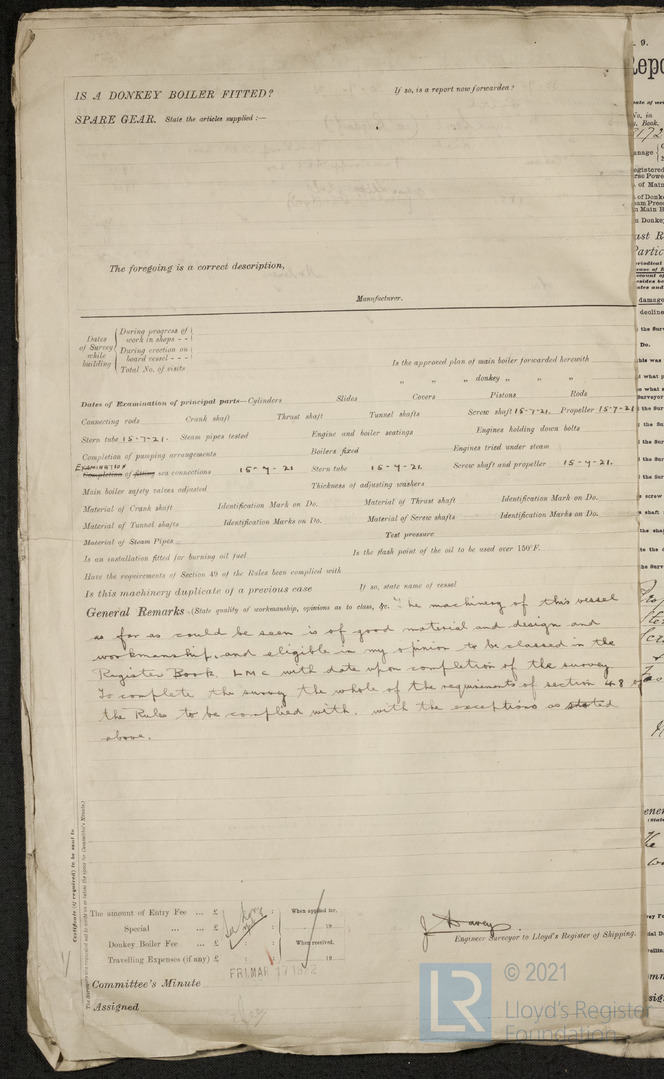 IS A DONKEY BOILER FITTED? If so, is a report now forwarded?
SPARE GEAR. State the articles supplied :—
The foregoing is a correct description,
Manufacturer.
Dates of Survey while building
During progress of work in shops - -
During erection on board vessel - - -
Total No. of visits
Is the approved plan of main boiler forwarded herewith
" " " donkey " " "
Dates of Examination of principal parts—Cylinders Slides Covers Pistons Rods
Connecting rods Crank shaft Thrust shaft Tunnel shafts Screw shaft 15-7-21. Propeller 15-7-21
Stern tube 15-7-21. Steam pipes tested Engine and boiler seatings Engines holding down bolts
Completion of pumping arrangements Boilers fixed Engines tried under steam
EXAMINATION
Completion of fitting sea connections 15-7-21 Stern tube 15-7-21. Screw shaft and propeller 15-7-21.
Main boiler safety valves adjusted Thickness of adjusting washers
Material of Crank shaft Identification Mark on Do. Material of Thrust shaft Identification Mark on Do.
Material of Tunnel shafts Identification Marks on Do. Material of Screw shafts Identification Marks on Do.
Material of Steam Pipes Test pressure
Is an installation fitted for burning oil fuel Is the flash point of the oil to be used over 150°F.
Have the requirements of Section 49 of the Rules been complied with
Is this machinery duplicate of a previous case If so, state name of vessel
General Remarks (State quality of workmanship, opinions as to class, &c. The machinery of this vessel
as far as could be seen is of good material and design and
workmanship, and eligible in my opinion to be classed in the
Register Book. LMC with date upon completion of the survey
To complete the survey the whole of the requirements of section 48 of
the Rules to be complied with. with the exceptions as stated
above.
Certificate (if required) to be sent to
The amount of Entry Fee ... £ : : When applied for,
Special ... ... £ : : 19
Donkey Boiler Fee ... £ : : When received,
Travelling Expenses (if any) £ : : 19
J Davey
Engineer Surveyor to Lloyd's Register of Shipping.
Committee's Minute FRI. MAR 17 1922
Assigned
LR
© 2021
Lloyd's Register
Foundation